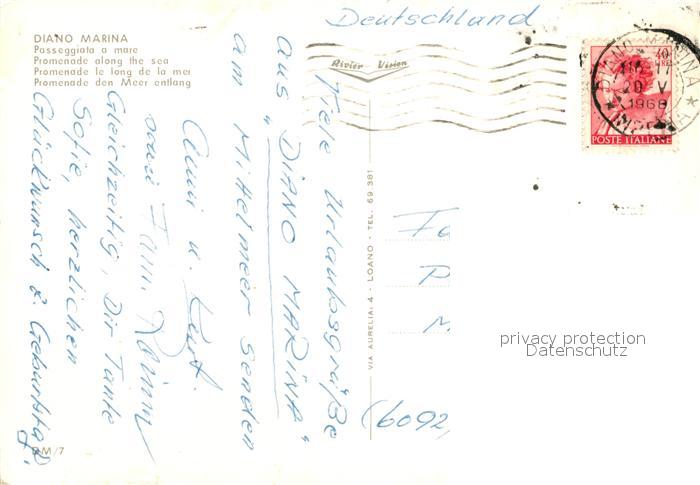 DIANO MARINA
Passeggiata a mare
Promenade along the sea
Promenade le long de la mer
Promenade den Meer entlang
Deutschland
Rivier Vision
DIANO MARINA
20 V
1968
POSTE ITALIANE
Viele Urlaubsgrüße
aus „DIANO MARINA"
am Mittelmeer senden
Anni u. Kurt.
sowie Fam.
Gleichzeitig, Dir Tante
Sofie, herzlichen
Glückwunsch z. Geburtstag.
VIA AURELIA, 4 - LOANO - TEL. 69 381
Fa
P
M
(6092,
privacy protection
Datenschutz
DM/7